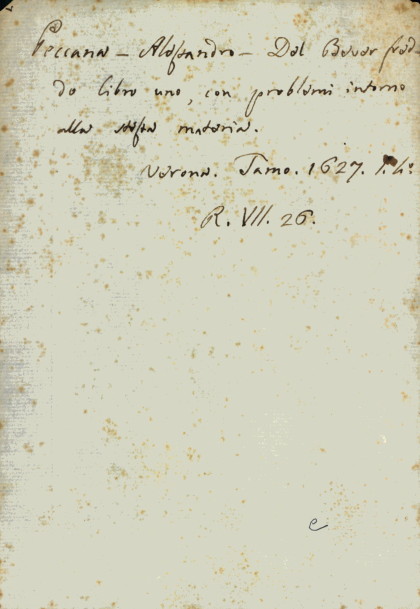 Peccana - Alessandro - Del Bever fred-
do libro uno, con problemi intorno
alla stessa materia.
Verona. Tamo. 1627. f. 4º
R. VII. 26.
e